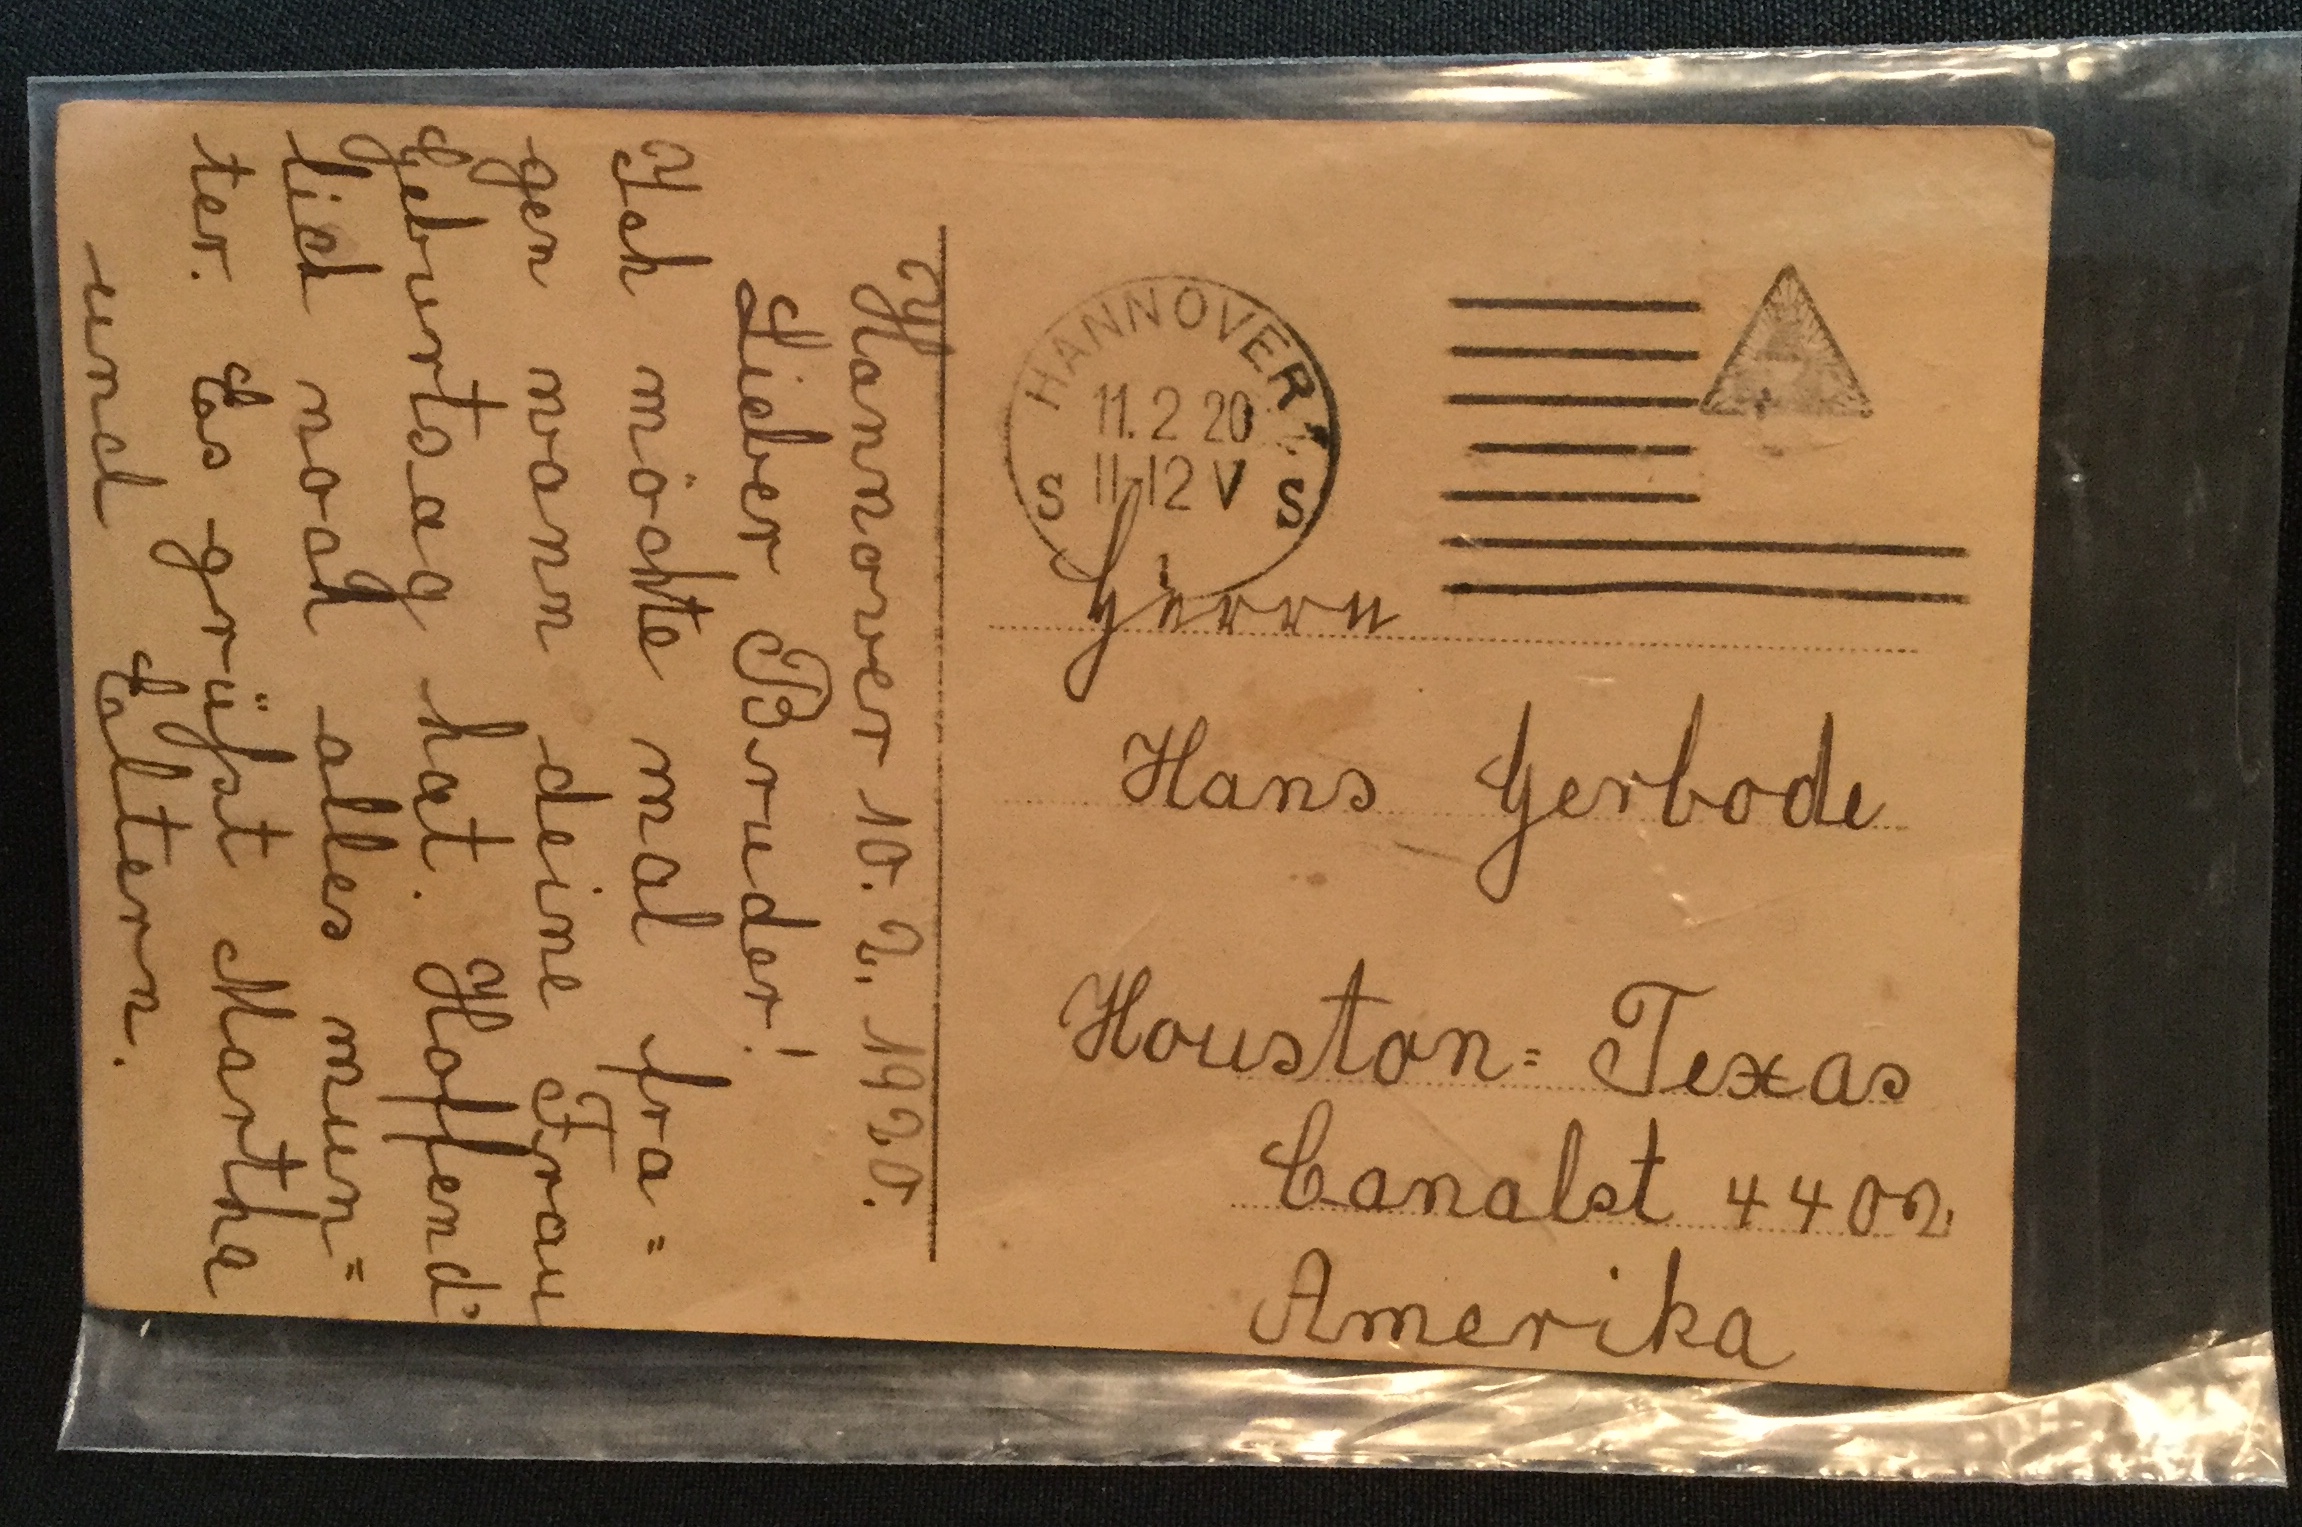 Hannover 10. 2. 1920.
Lieber Bruder!
Ich möchte mal fra=
gen wann deine Frau
Geburtsag hat. Hoffend
lich noch alles mun=
ter. Es grüßt Martha
und Eltern.
HANNOVER
11.2 20
11-12 V
S S
1
Herrn
Hans Gerbode
Houston= Texas
Canalst 4402.
Amerika